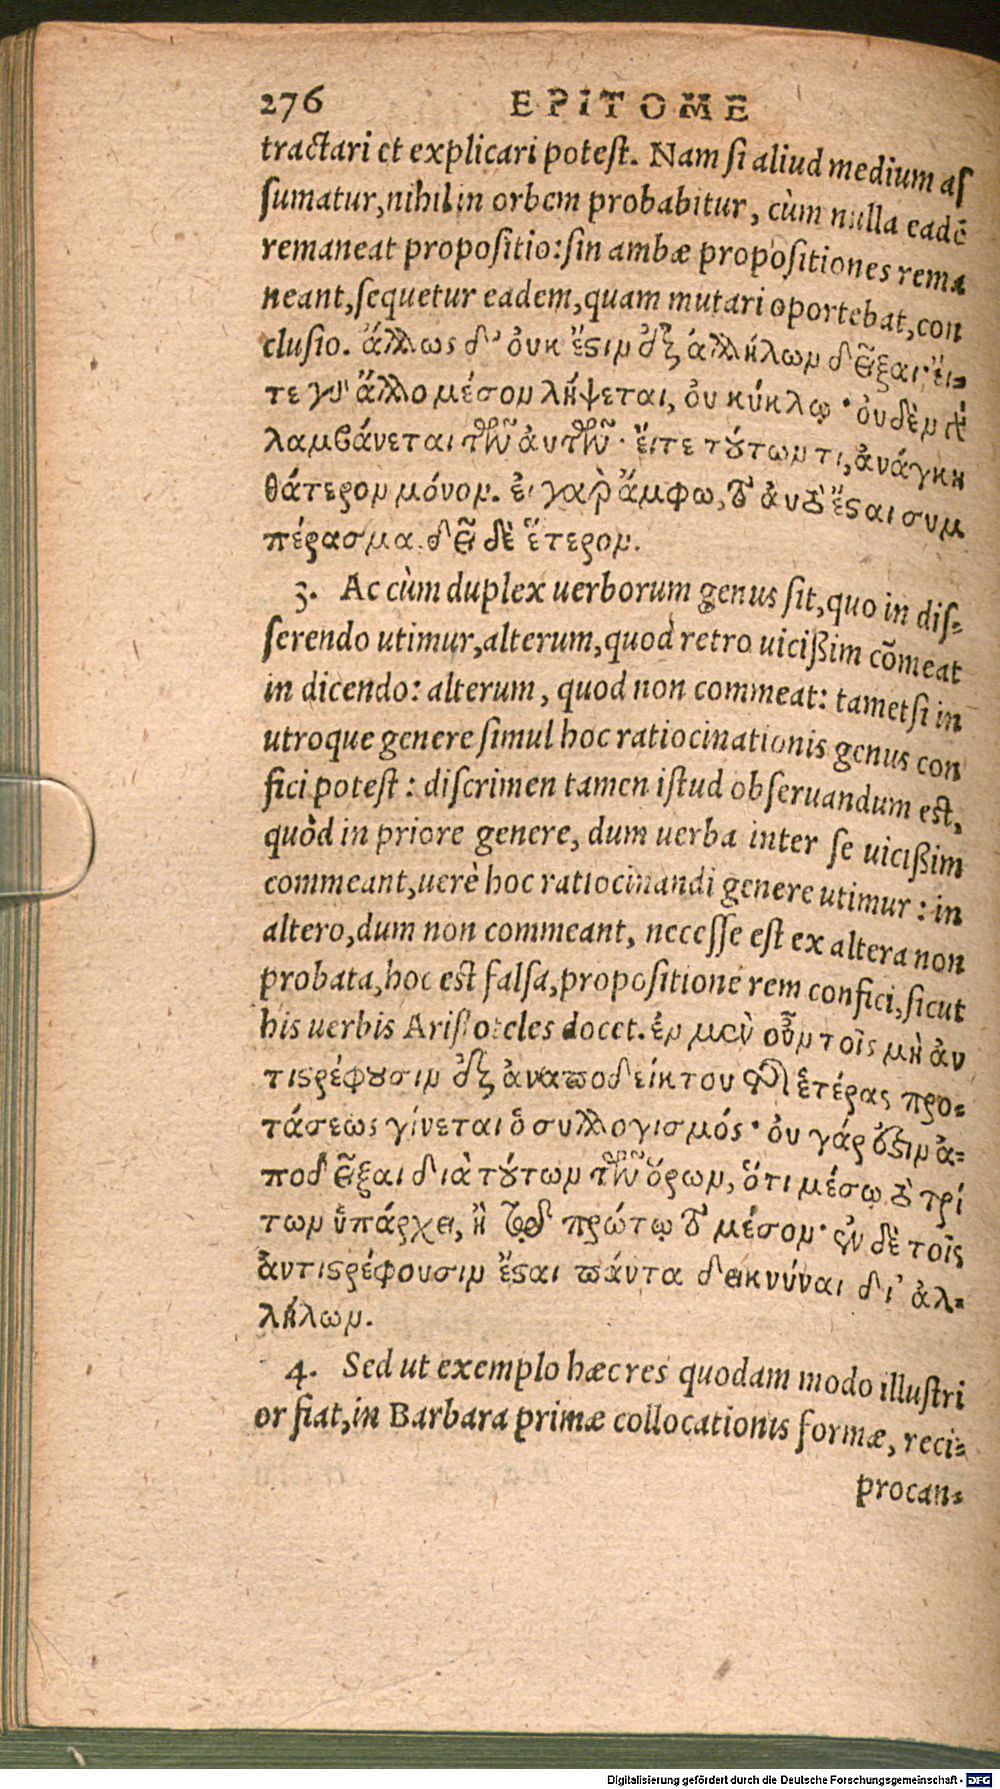 276 EPITOME
tractari et explicari potest. Nam si aliud medium as
sumatur, nihil in orbem probabitur, cùm nulla eadẽ
remaneat propositio: sin ambæ propositiones rema
neant, sequetur eadem, quam mutari oportebat, con
clusio. ἄλλως δ' ὀυκ ἔϛιν ἐξ ἀλλήλων δεῖξαι· ἔι-
τε γὸ ἄλλο μέσον λήψεται, ὀυ κύκλῳ· ὀυδὲν γὸ
λαμβάνεται τῶν ἀυτῶν· ἔιτε τούτων τι, ἀνάγκη
θάτερον μόνον. ἐι γὰρ ἄμφω, τὸ ἀυτὸ ἔϛαι συμ
πέρασμα. δεῖ δὲ ἕτερον.
3. Ac cùm duplex uerborum genus sit, quo in dis-
serendo utimur, alterum, quod retro uicißim cõmeat
in dicendo: alterum, quod non commeat: tametsi in
utroque genere simul hoc ratiocinationis genus con
fici potest: discrimen tamen istud obseruandum est,
quòd in priore genere, dum uerba inter se uicißim
commeant, uerè hoc ratiocinandi genere utimur: in
altero, dum non commeant, necesse est ex altera non
probata, hoc est falsa, propositione rem confici, sicut
his uerbis Aristoteles docet. ἐν μὲν οὖν τοῖς μὴ ἀν
τιϛρέφουσιν ἐξ ἀναποδείκτου τῆς ἑτέρας προ-
τάσεως γίνεται ὁ συλλογισμός· ὀυ γάρ ἐϛιν ἀ-
ποδεῖξαι διὰ τούτων τῶν ὅρων, ὅτι μέσῳ τὸ τρί
τον ὑπάρχει, ἢ τῷ πρώτῳ τὸ μέσον· ἐν δὲ τοῖς
ἀντιϛρέφουσιν ἔϛαι πάντα δεικνύναι δι' ἀλ-
λήλων.
4. Sed ut exemplo hæc res quodam modo illustri
or fiat, in Barbara primæ collocationis formæ, reci-
procan-
Digitalisierung gefördert durch die Deutsche Forschungsgemeinschaft - DFG